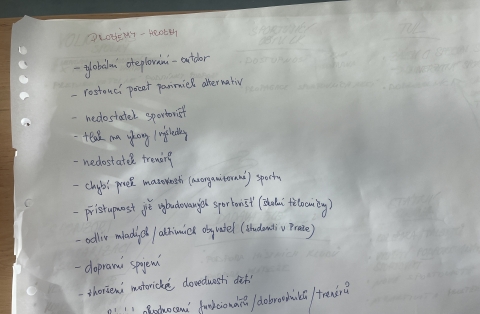 PROBLÉMY - HROZBY
- globální oteplování - outdor
- rostoucí počet pasivních alternativ
- nedostatek sportovišť
- tlak na výkony / výsledky
- nedostatek trenérů
- chybí prvek masovosti (neorganizovaného) sportu
- přístupnost již vybudovaných sportovišť (školní tělocvičny)
- odliv mladých / aktivních obyvatel (studenti v Praze)
- dopravní spojení
- zhoršení motorické dovednosti dětí
ohodnocení funkcionářů / dobrovolníků / trenérů